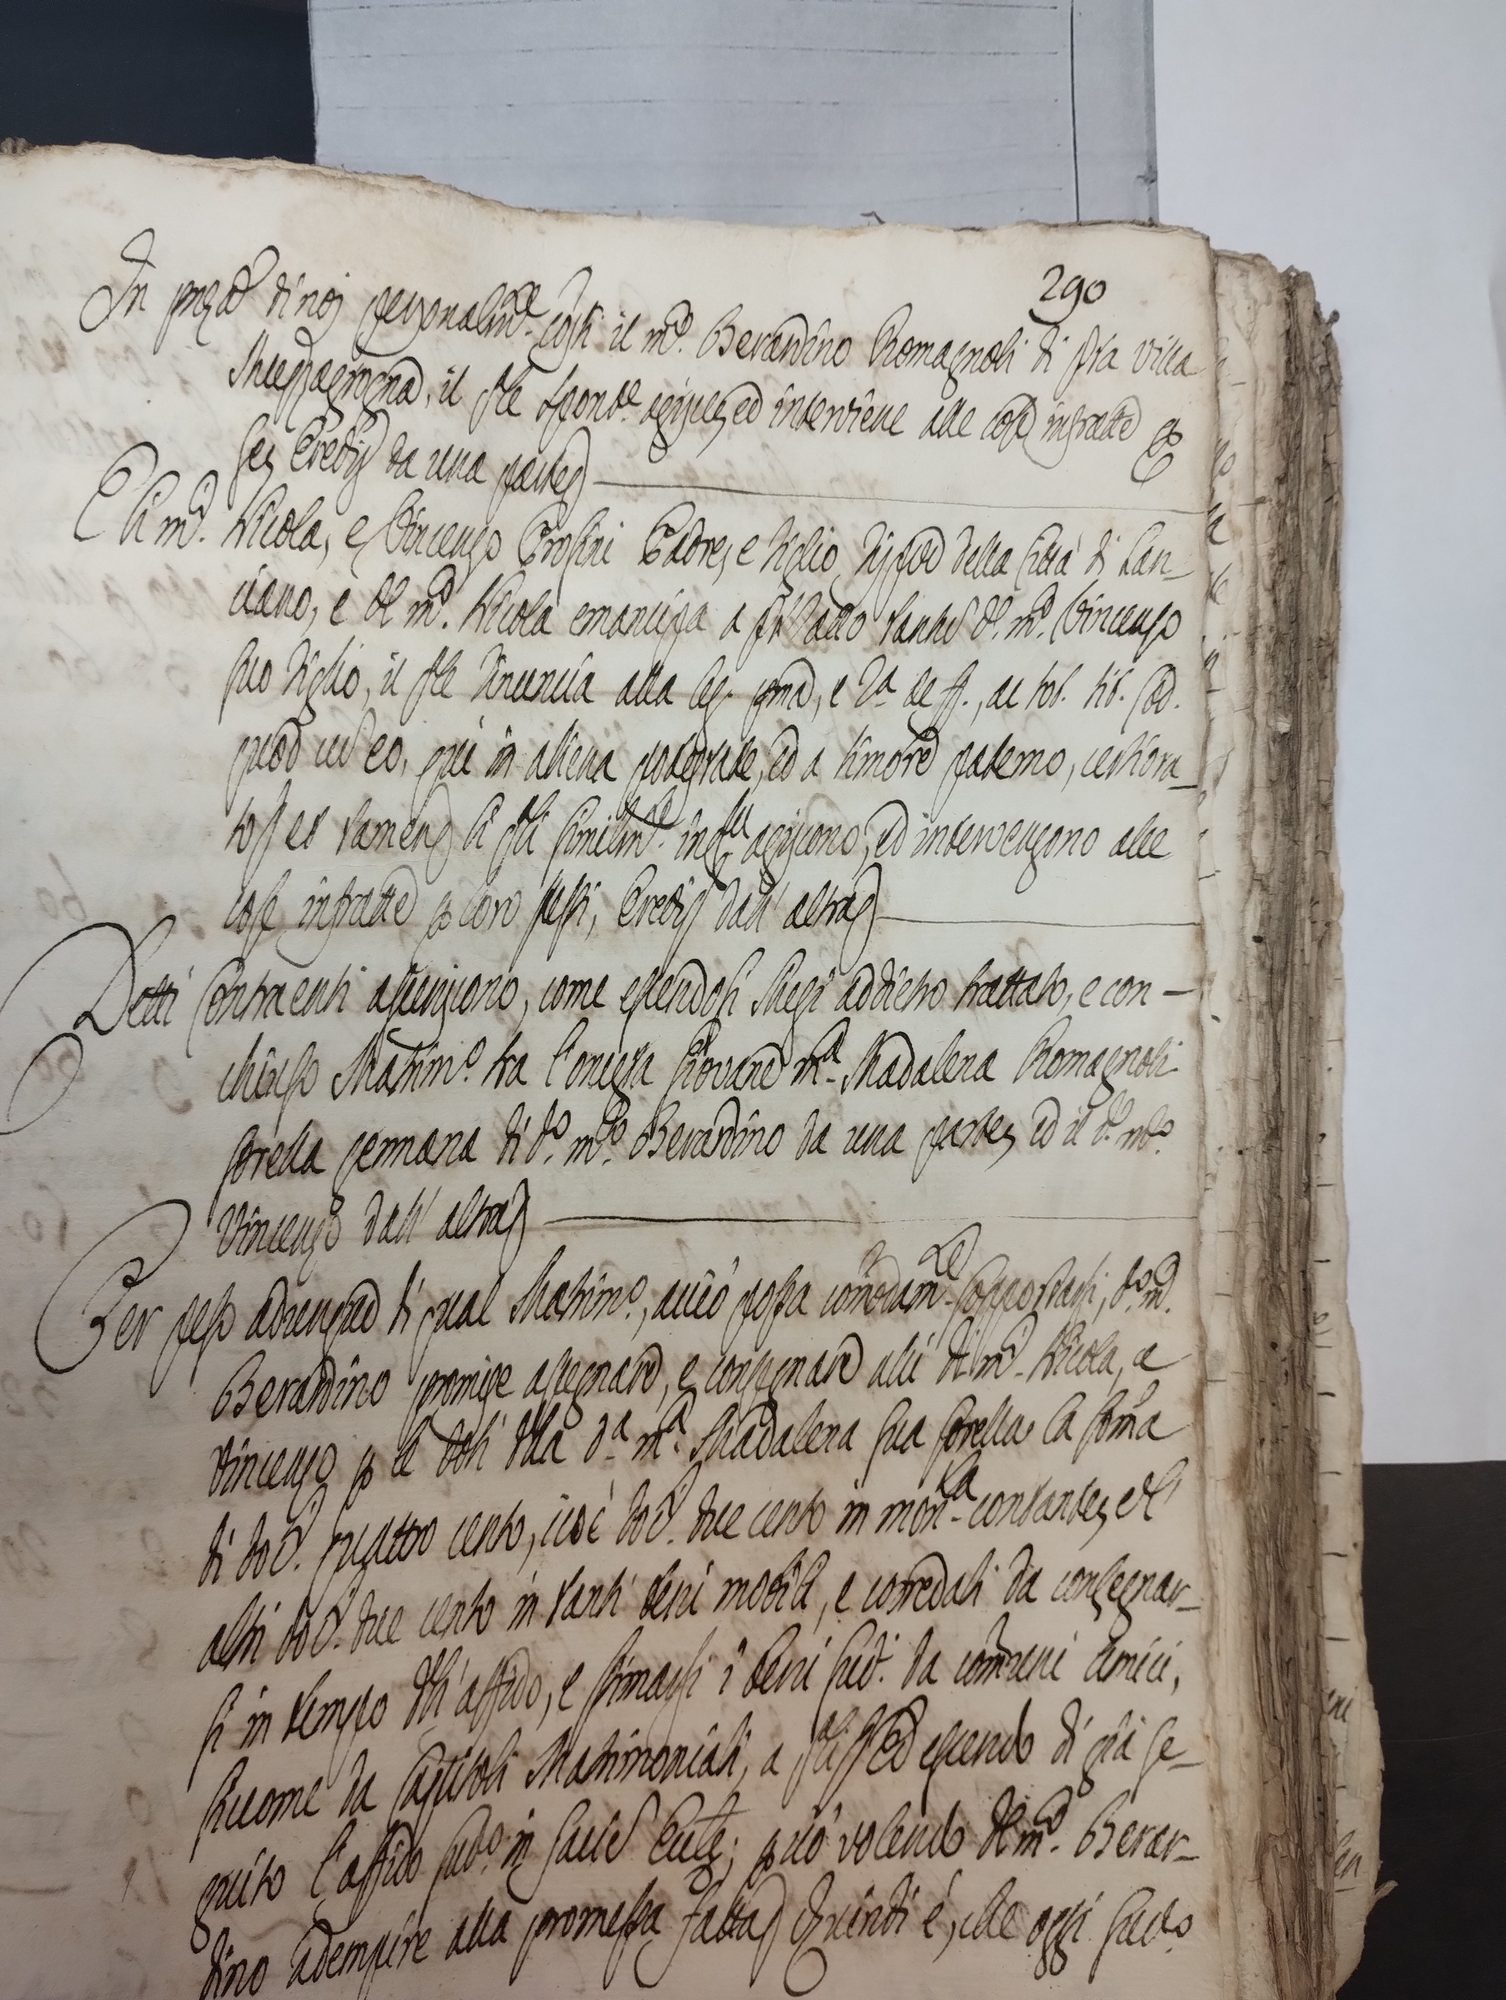 290
In pnza di noi personalmte costi il mco. Berardino Romagnoli di qta villa
Mezzagrogna, il qle spontte agisce, ed interviene alle cose infratte p
se, Eredi da una parte
E li mci. Nicola, e Vincenzo Erosini Padre, e Figlio, della Città di Lan-
ciano, e do mco. Nicola emancipa a qto atto tantū do. mco. Vincenzo
suo Figlio, il qle rinuncia alla leg. pma, e 2a de ff., ac tot. tit. Cod.
quod cum eo, qui in aliena potestate, ed a timore paterno, certiora-
tos et tamen li qli similmte agiscono, ed intervengono alle
cose infratte p loro stessi, Eredi dall' altra
Detti Contraenti asseriscono, come essendosi Mesi addietro trattato, e con-
chiuso Matrimo. tra l'onesta Giovane mca Madalena Romagnoli
sorella germana di do. mco. Berardino da una parte, ed il do. mco.
Vincenzo dall' altra
Per peso adunque di qual Matrimo., acciò possa comodamte sopportarsi, do. mco.
Berardino promise assegnare, e consegnare alli di mci. Nicola, e
Vincenzo p le doti della da mca. Madalena sua sorella la soma
di doti. quattro cento, cioè doti. due cento in monta contante, e gl'
altri doti. due cento in tanti beni mobili, e corredali da consegnar-
si in tempo dell' affido, e stimarsi i beni sudi. da comuni amici,
siccome da Capitoli Matrimoniali, a qli Ed essendo di già se-
guito l'affido sudo. in facie Eccle; p ciò volendo do mco. Berar-
dino adempire alla promessa fatta Quindi è, che oggi sudo